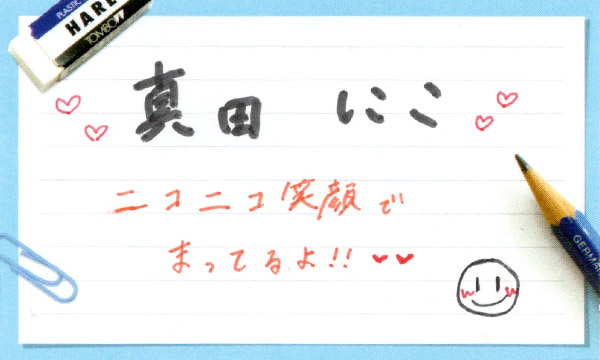 PLASTIC
HARD
TOMBOW
真田 にこ
ニコニコ笑顔で
まってるよ!!
GERMANY